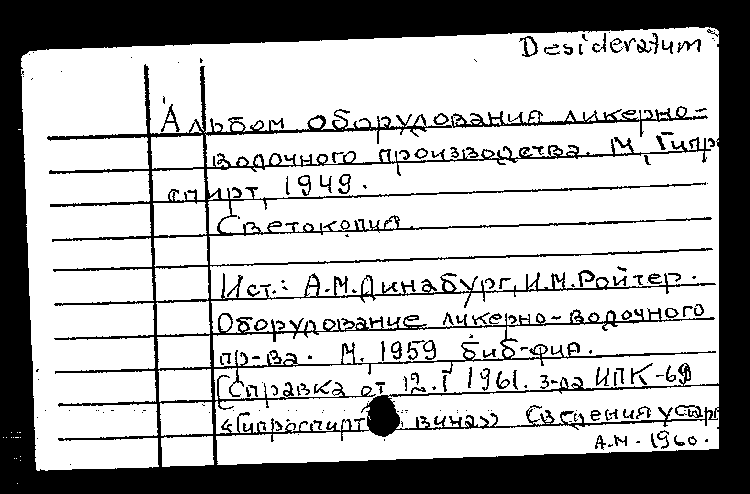 Desideratum
Альбом оборудования ликерно-
водочного производства. М, Гипро
спирт, 1949.
Светокопия.
Ист.: А.М.Динабург, И.М.Ройтер.
Оборудование ликерно-водочного
пр-ва. М., 1959 биб-фия.
[Справка от 12.I 1961. з-да ИПК-69
«Гипроспирт вина» Сведения устар
А.М. 1960.